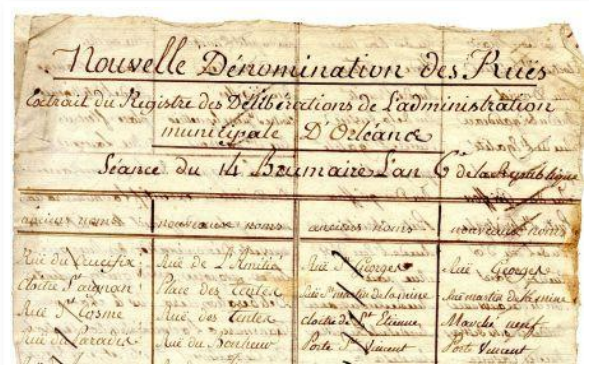 Nouvelle Dénomination des Ruës
Extrait du Registre des Délibérations de L'administration
municipale D'Orléans
Séance du 14 Brumaire L'an 6e de la République
anciens noms nouveaux noms anciens noms nouveaux noms
Ruë du Crucifix Ruë de L'Amitié Ruë St Georges Ruë Georges
cloitre St aignan Place des Tentes Ruë St martin de la mine Ruë martin de la mine
Ruë St Cosme Ruë des Tentes cloitre de St Etienne Marché neuf
Ruë du Paradis Ruë du Bonheur Porte St Vincent Porte Vincent